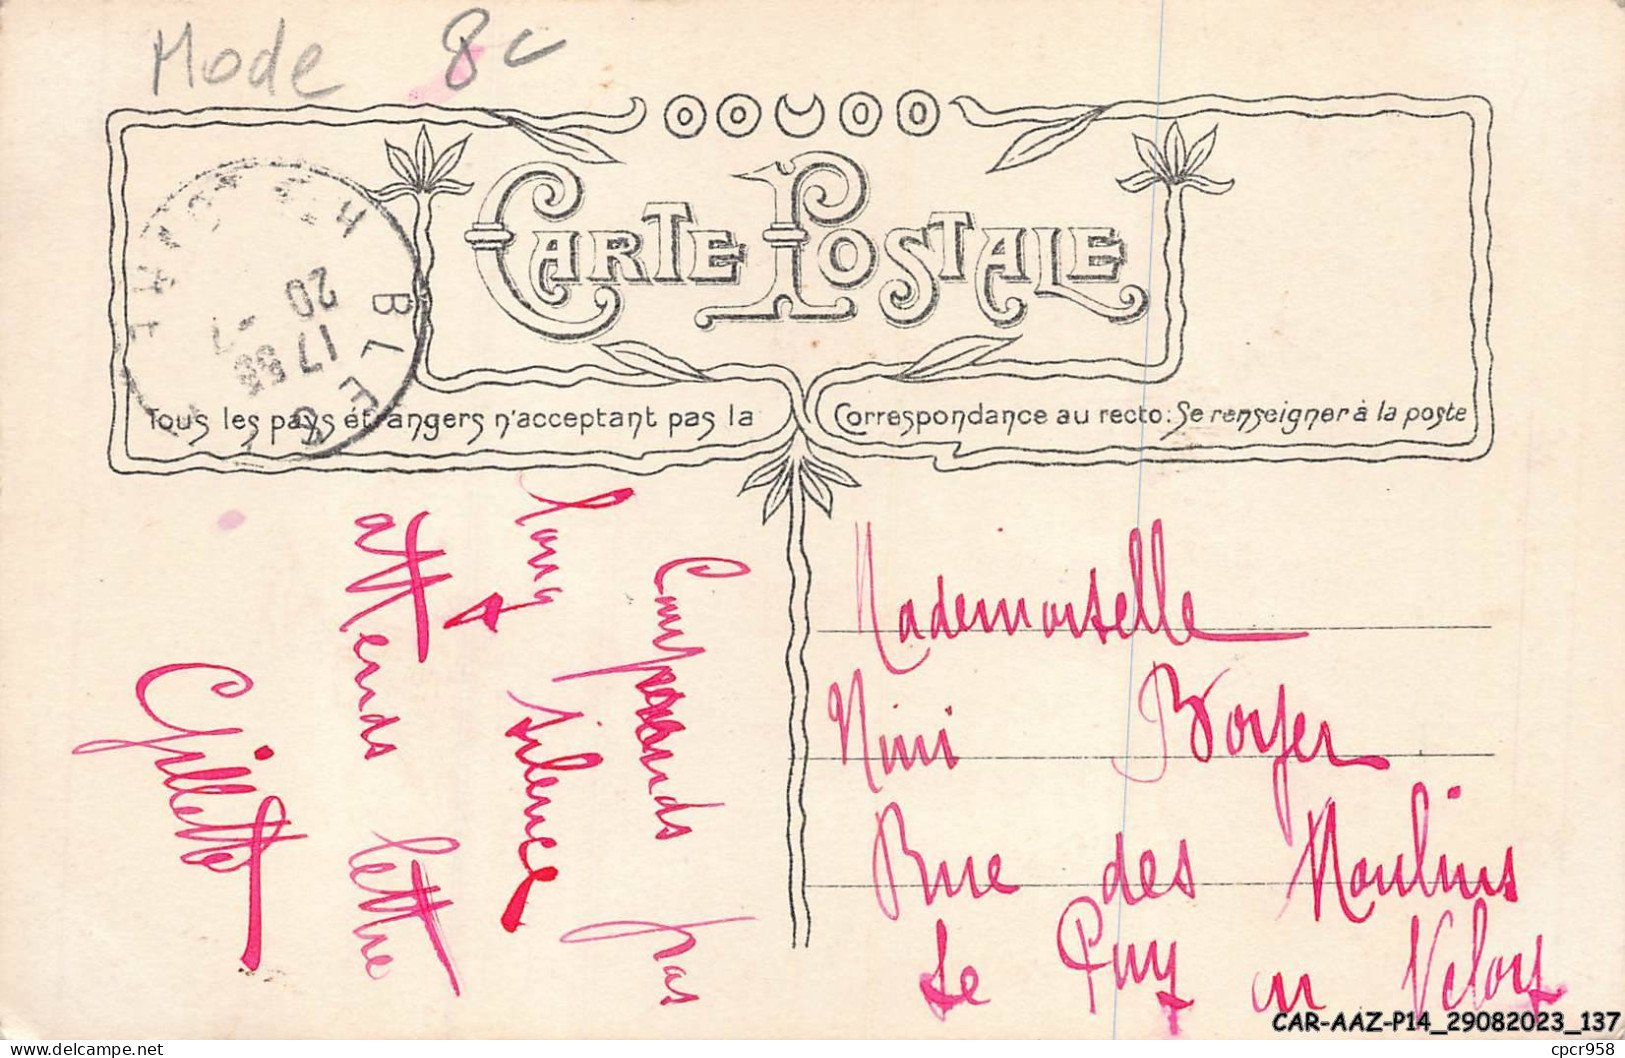 Mode 8c
CARTE POSTALE
Tous les pays étrangers n'acceptant pas la
Correspondance au recto: Se renseigner à la poste
BLE
17 38
20 -7
Comprends pas
long silence
attends lettre
Gillette
Mademoiselle
Nini Boyer
Rue des Moulins
Le Puy en Velay
CAR-AAZ-P14_29082023_137
cpcr958